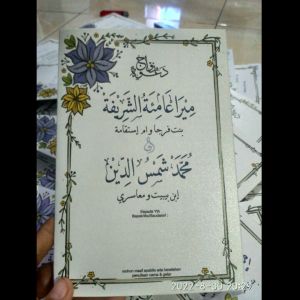 ميرا غامنة الشريفة
بنت فرجا و ام إستقامة
و
محمد شمس الدين
إبن بيبيت و معاسري
Kepada Yth
Bapak/Ibu/Saudara/i
mohon maaf apabila ada kesalahan
penulisan nama & gelar